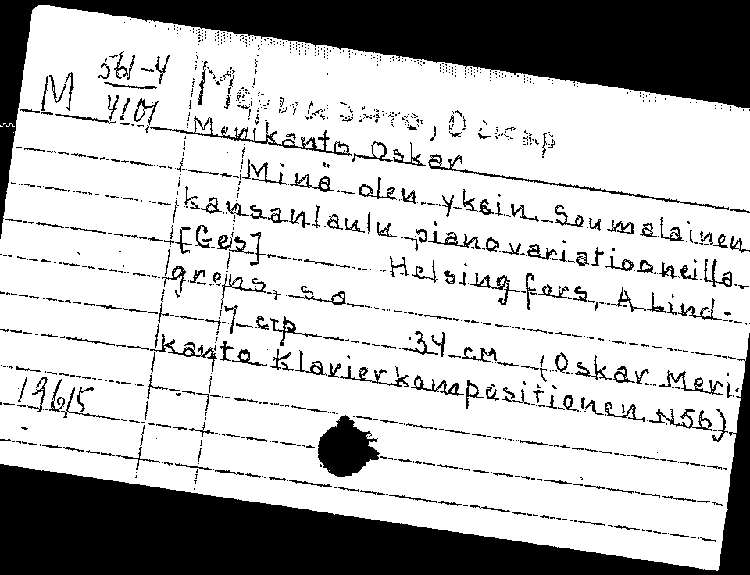 М 561-4
4101
Мериканто, Оскар
Merikanto, Oskar
Minä olen yksin. Soumalainen
kansanlaulu pianovariatiooneilla.
[Ges] Helsingfors, A Lind-
grens, s a
7 стр 34 см (Oskar Meri-
kanto Klavierkompositionen. N56)
196/5